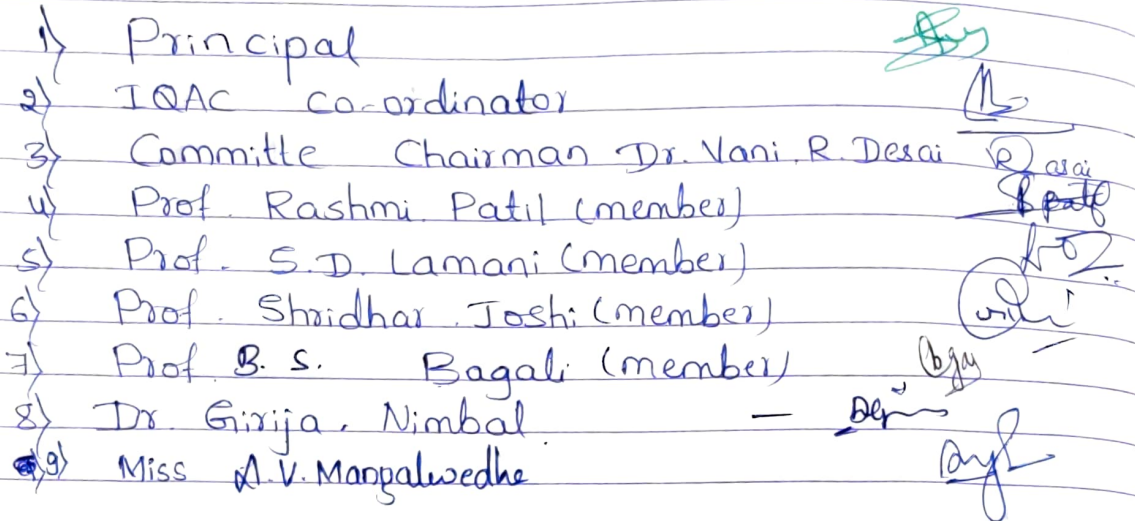 1) Principal
2) IQAC co-ordinator
3) Committe Chairman Dr. Vani. R. Desai
4) Prof. Rashmi. Patil (member)
5) Prof. S.D. Lamani (member)
6) Prof. Shridhar. Joshi (member)
7) Prof. B. S. Bagali (member)
8) Dr. Girija. Nimbal. —
9) Miss A.V. Mangalwedhe